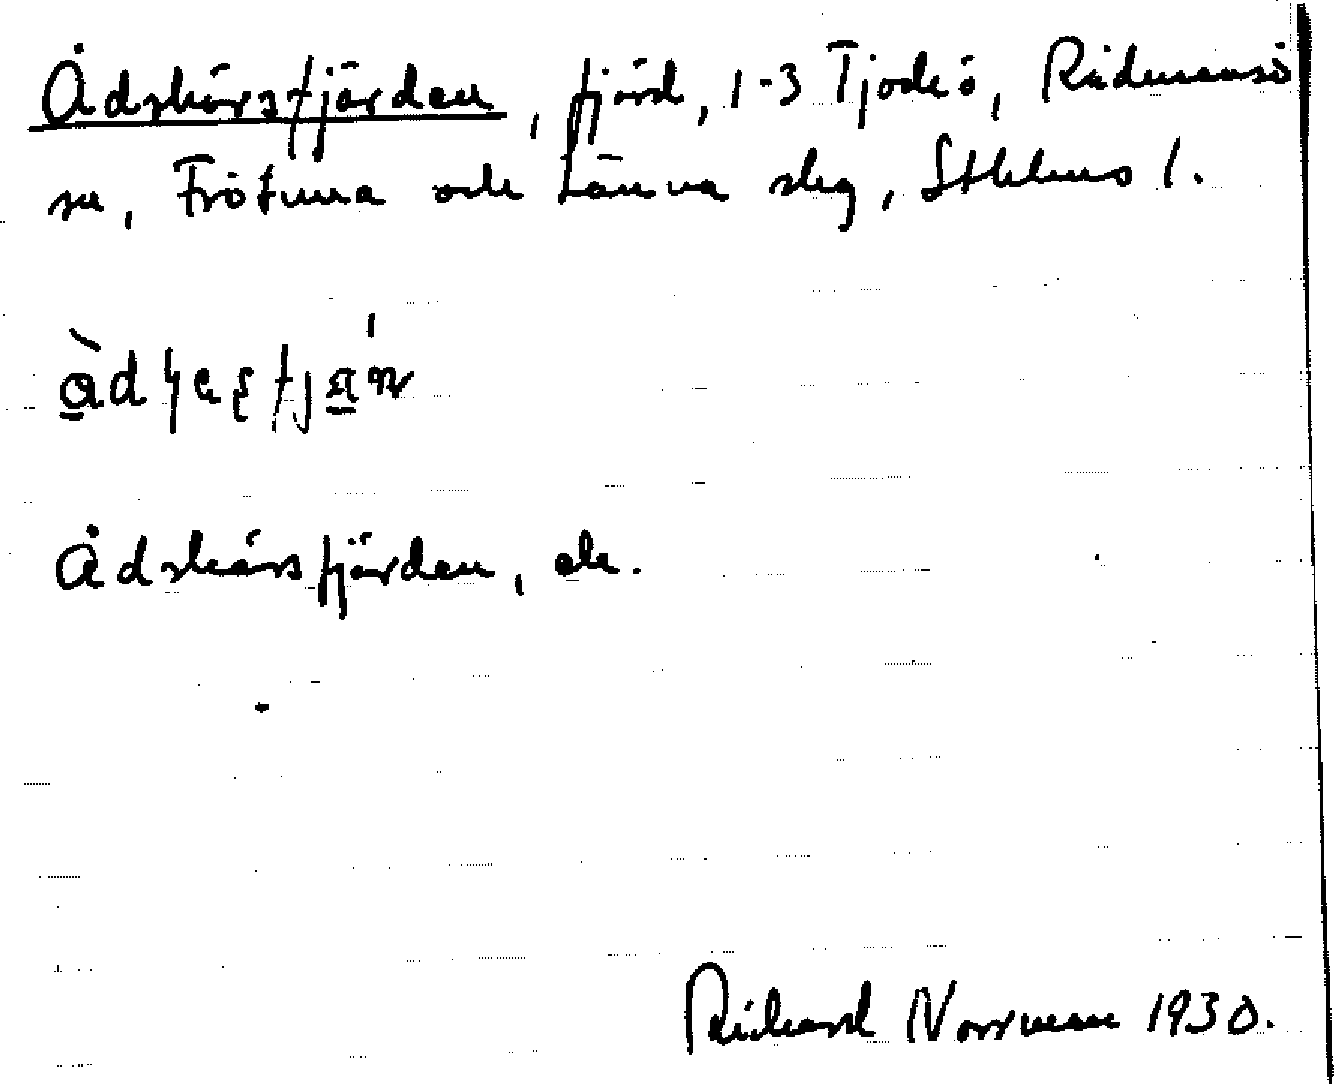 Ådskärsfjärden, fjärd, 1-3 Tjockö, Rådmansö
sn, Frötuna och Länna skg, Sthlms l.
Ådskärsfjärden, ek.
Richard Norrman 1930.